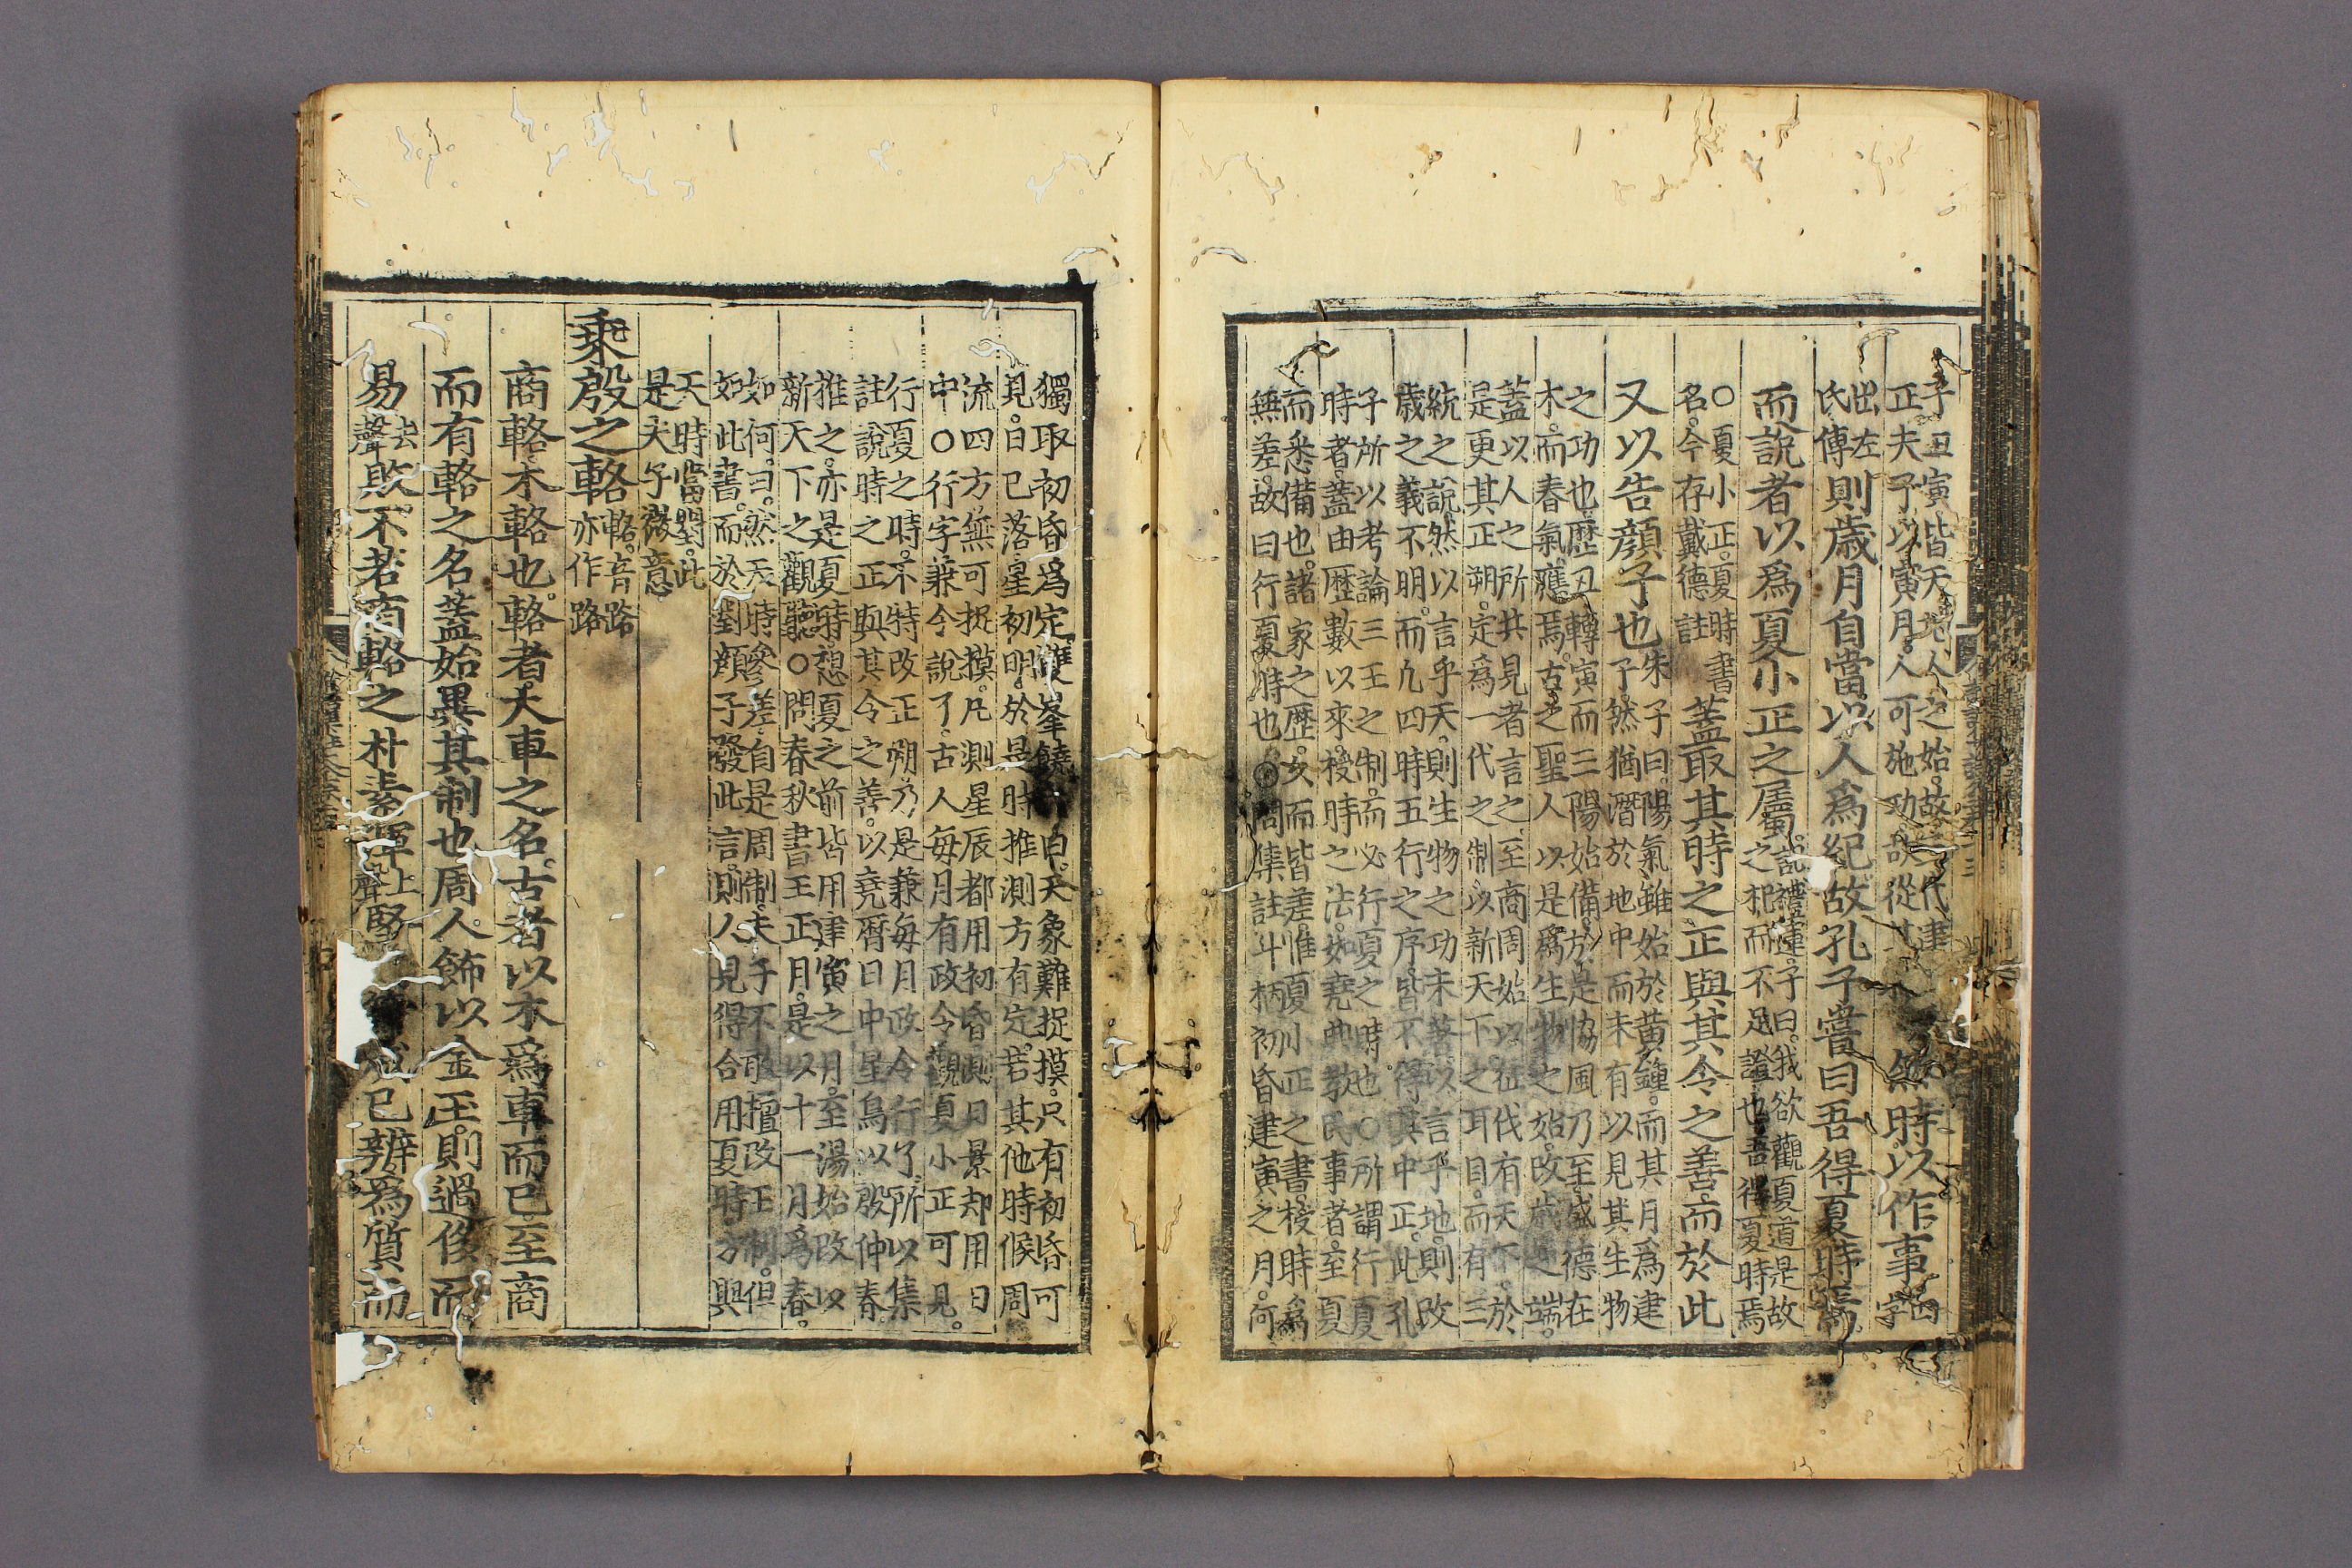 子丑寅皆天地人之始故三代建
正夫子以寅月人可施功故從其
然時以作事四字
出左氏傳則歲月自當以人爲紀故孔子嘗曰吾得夏時焉
而說者以爲夏小正之屬記禮運子曰我欲觀夏道是故
之杞而不足證也吾得夏時焉
○夏小正夏時書
名今存戴德註蓋取其時之正與其令之善而於此
又以告顏子也朱子曰陽氣雖始於黃鍾而其月爲建
子然猶潛於地中而未有以見其生物
之功也歷丑轉寅而三陽始備於是協風乃至盛德在
木而春氣應焉古之聖人以是爲生物之始改歲之端
蓋以人之所共見者言之至商周始以征伐有天下於
是更其正朔定爲一代之制以新天下之耳目而有三
統之說然以言乎天則生物之功未著以言乎地則改
歲之義不明而凡四時五行之序皆不得其中正此孔
子所以考論三王之制而必行夏之時也○所謂行夏
時者蓋由歷數以來授時之法如堯典敎民事者至夏
而悉備也諸家之歷久而皆差惟夏小正之書授時爲
無差故曰行夏時也○問集註斗柄初昏建寅之月何
獨取初昏爲定雙峯饒氏曰天象難捉摸只有初昏可
見日已落星初明於是時推測方有定若其他時候周
流四方無可捉摸凡測星辰都用初昏測日景却用日
中○行字兼令說了古人每月有政令觀夏小正可見
行夏之時不特改正朔乃是兼每月政令行了所以集
註說時之正與其令之善以堯曆日中星鳥以殷仲春
推之亦是夏時想夏之前皆用建寅之月至湯始改以
新天下之觀聽○問春秋書王正月是以十一月爲春
如何曰然天時參差自是周制夫子不敢擅改王制但
如此書而於對顏子發此言則人見得合用夏時方與
天時當對此
是夫子微意
乘殷之輅輅音路
亦作路
商輅木輅也輅者大車之名古者以木爲車而已至商
而有輅之名蓋始異其制也周人飾以金玉則過侈而
易去聲敗不若商輅之朴素渾上聲堅已辨爲質而